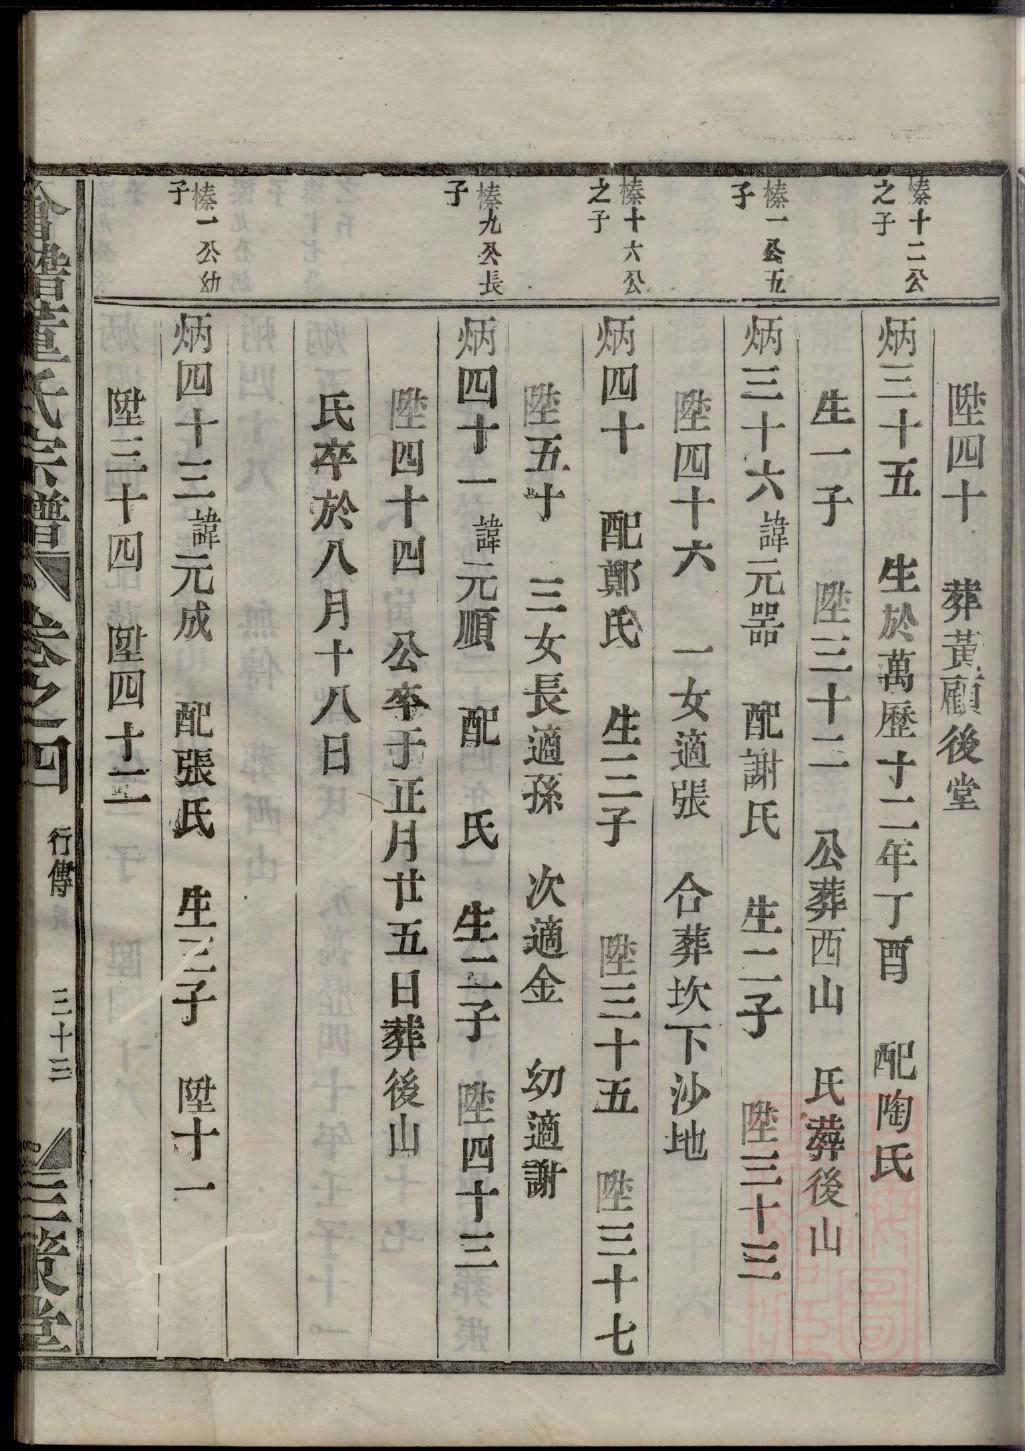 陞四十 葬黃顧後堂
榛十二公
之子
炳三十五 生於萬歷十二年丁酉 配陶氏
生一子 陞三十二 公葬西山 氏葬後山
榛一公五
子
炳三十六諱元器 配謝氏 生二子 陞三十三
陞四十六 一女適張 合葬坎下沙地
榛十六公
之子
炳四十 配鄭氏 生三子 陞三十五 陞三十七
陞五十 三女長適孫 次適金 幼適謝
榛九公長
子
炳四十一諱元順 配 氏 生二子 陞四十三
陞四十四 公卒于正月廿五日葬後山
氏卒於八月十八日
榛一公幼
子
炳四十三諱元成 配張氏 生三子 陞十一
陞三十四 陞四十二
會稽董氏宗譜 卷之四 行傳 三十三 三策堂